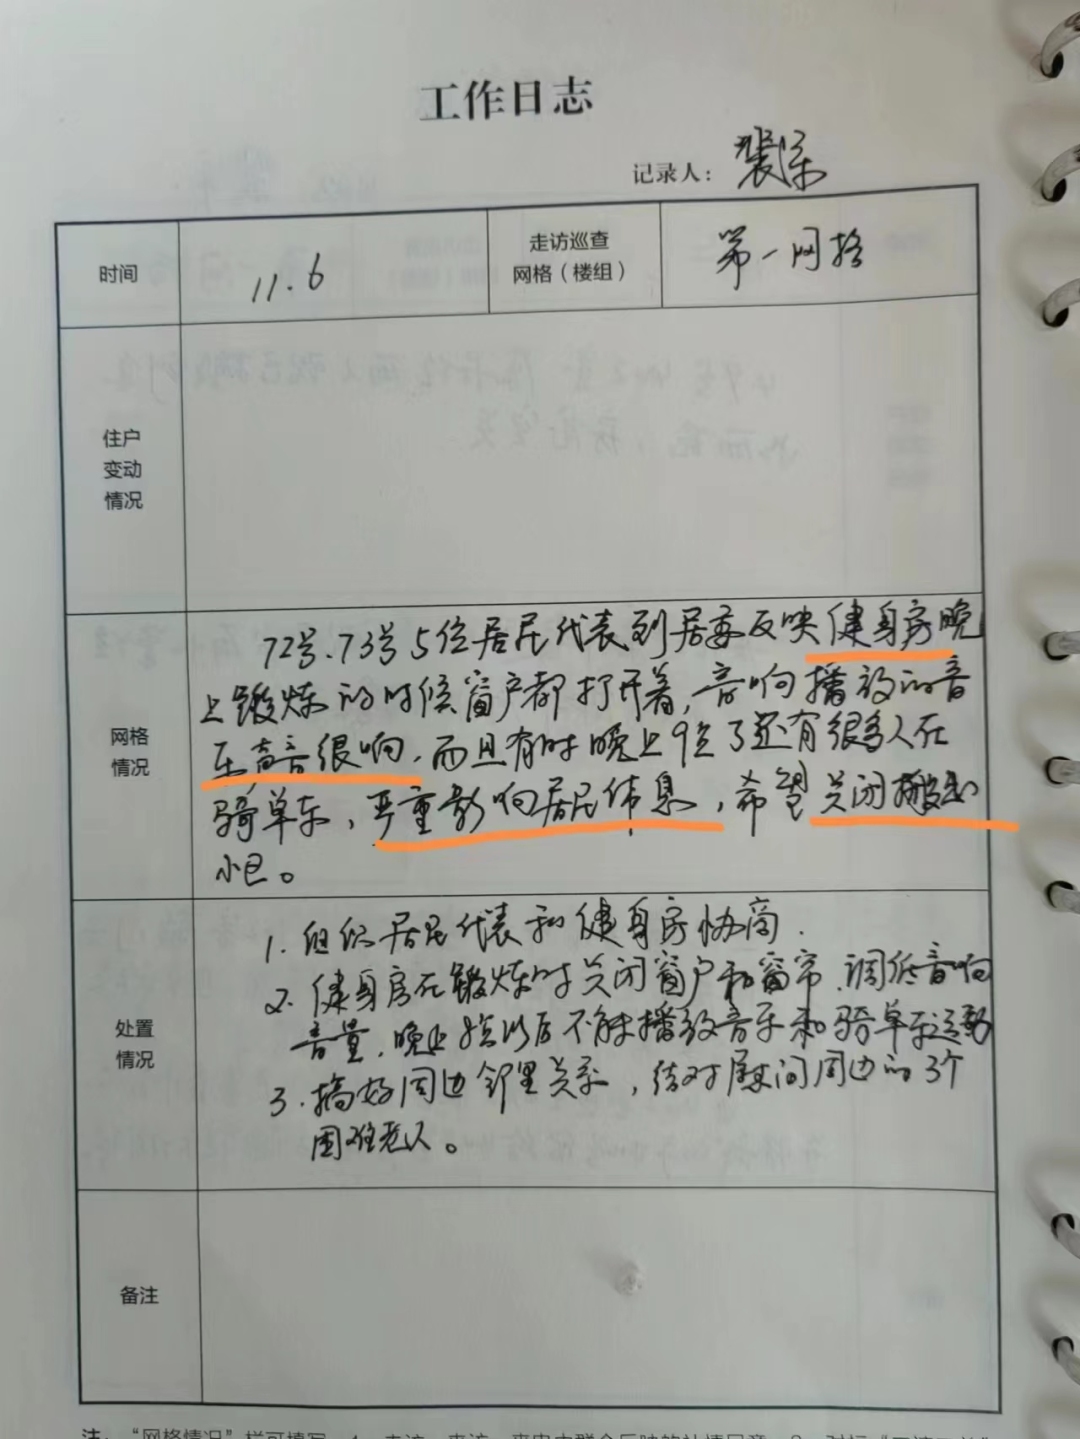 工作日志
记录人：裴深
时间
11.6
走访巡查
网格（楼组）
第一网格
住户
变动
情况
网格
情况
72号.73号5位居民代表到居委反映健身房晚
上锻炼的时候窗户都打开着，音响播放的音
乐声音很响，而且有时晚上9点了还有很多人在
骑单车，严重影响居民休息，希望关闭搬出
小区。
处置
情况
1.组织居民代表和健身房协商.
2.健身房在锻炼时关闭窗户和窗帘.调低音响
音量，晚上 以后不能播放音乐和骑单车运动
3.搞好周边邻里关系，结对慰问周边的3个
困难老人。
备注